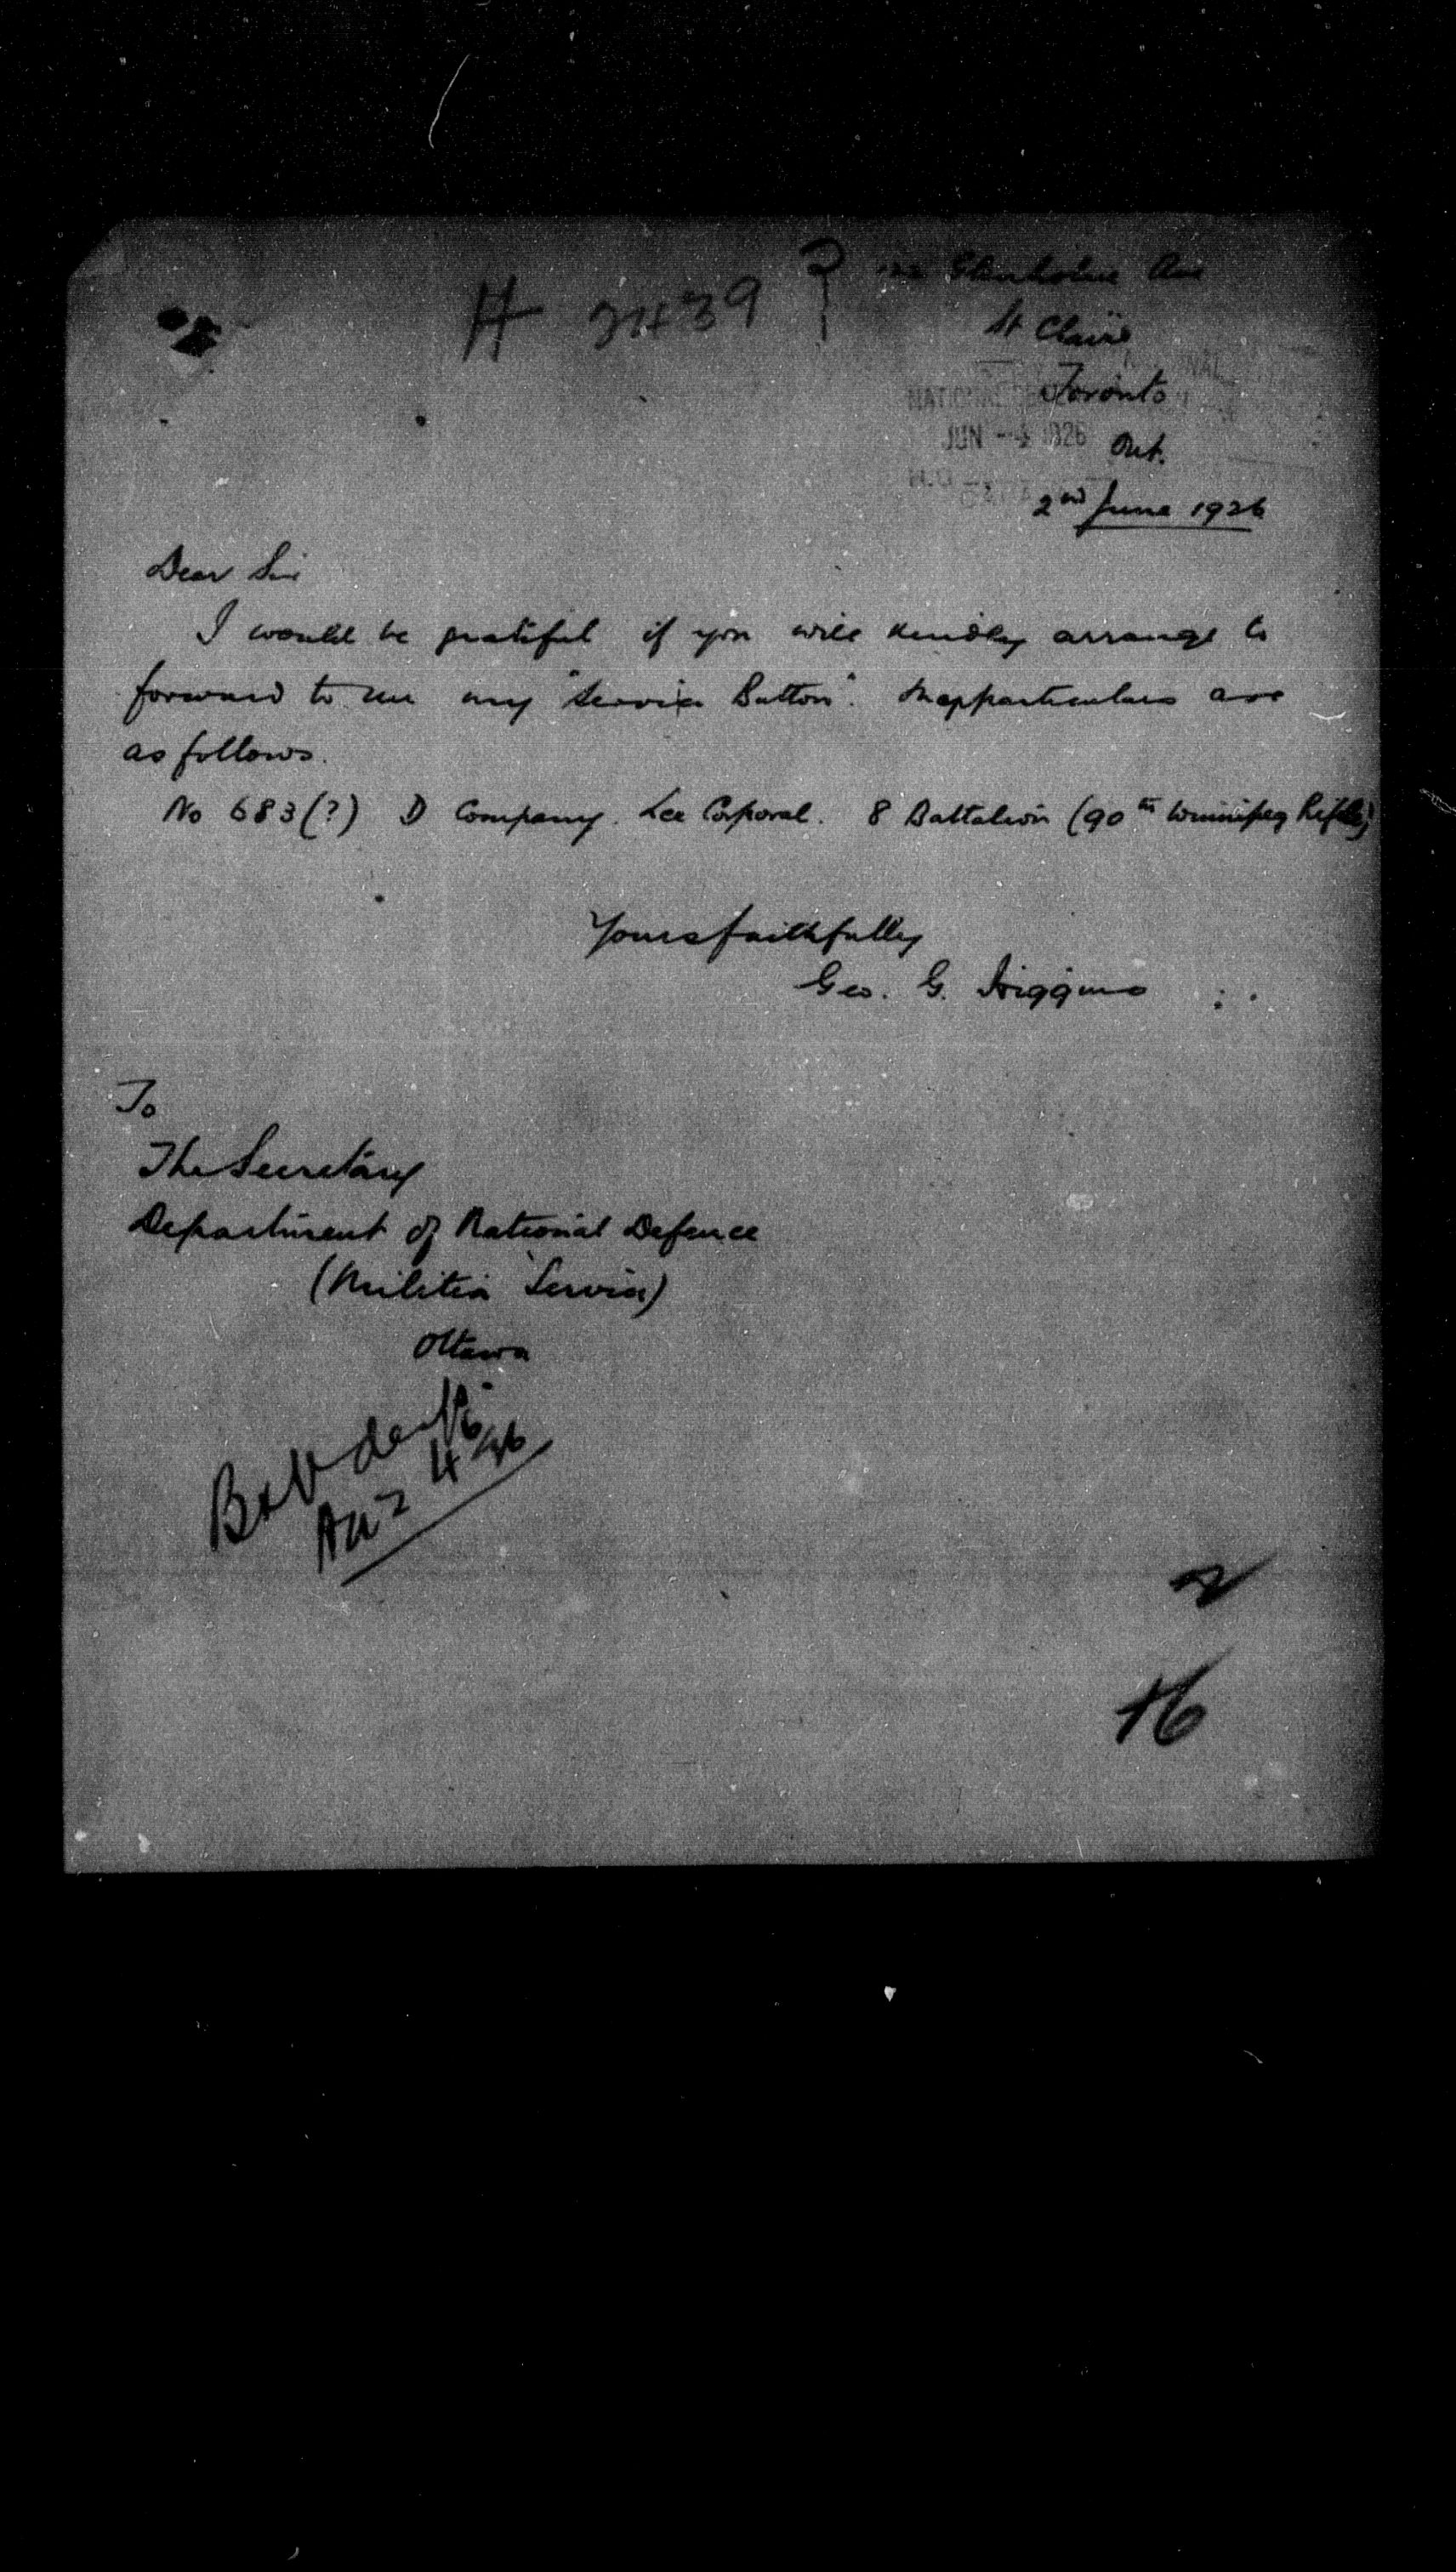 H 2439 ?
Glenholme Ave
St Clair
Toronto
NATIONAL
JUN -4 1926
Ont.
2nd June 1926
Dear Sir
I would be grateful if you will kindly arrange to
forward to me my "Service Button". My particulars are
as follows.
No 683(?) D Company. Lce Corporal. 8 Battalion (90th Winnipeg Rifles)
Yours faithfully
Geo. G. Higgins
To
The Secretary
Department of National Defence
(Militia Service)
Ottawa
16